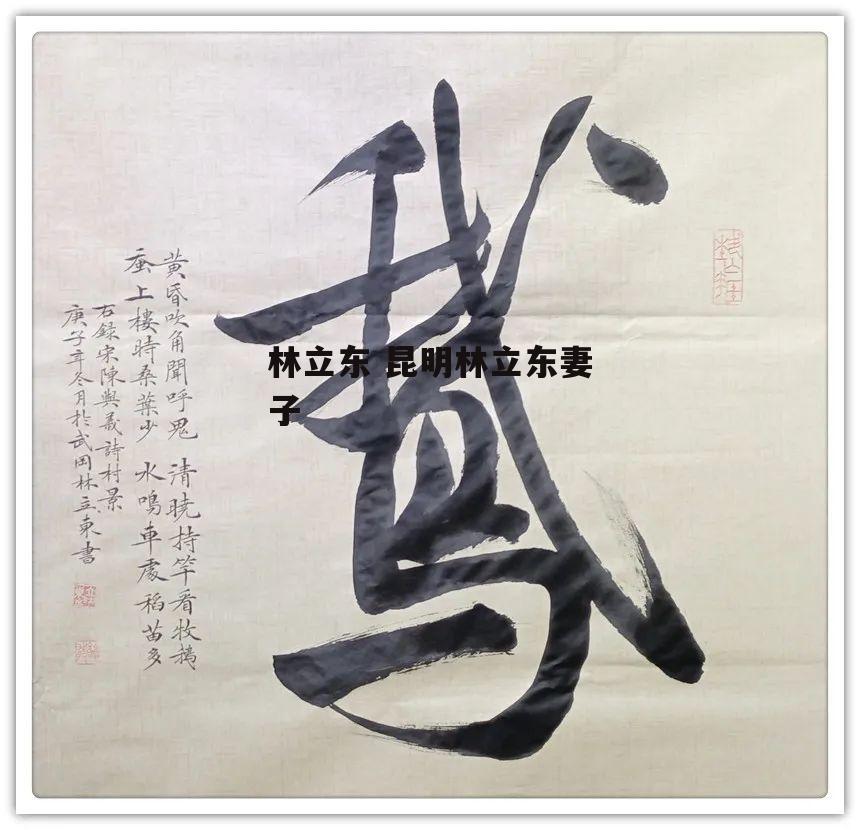 鵝
林立东 昆明林立东妻
子
黃昏吹角聞呼鬼 清曉持竿看牧鵝
蚕上樓時桑葉少 水鳴車處稻苗多
右録宋陳與義詩村景
庚子年冬月於武岡林立東書